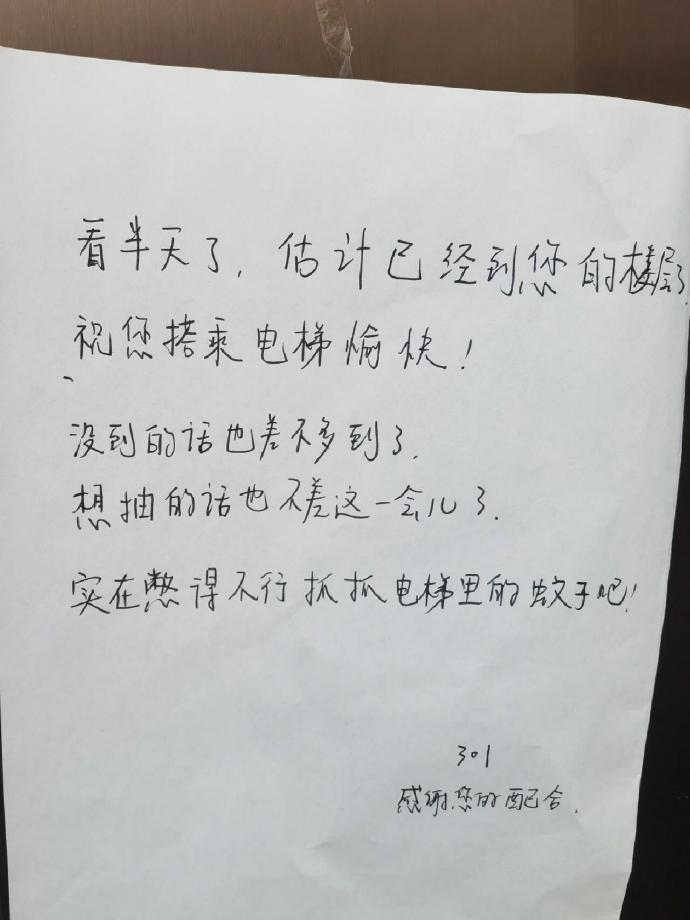 看半天了，估计已经到您的楼层了.
祝您搭乘电梯愉快！
没到的话也差不多到了.
想抽的话也不差这一会儿了.
实在憋得不行抓抓电梯里的蚊子吧！
301
感谢您的配合.